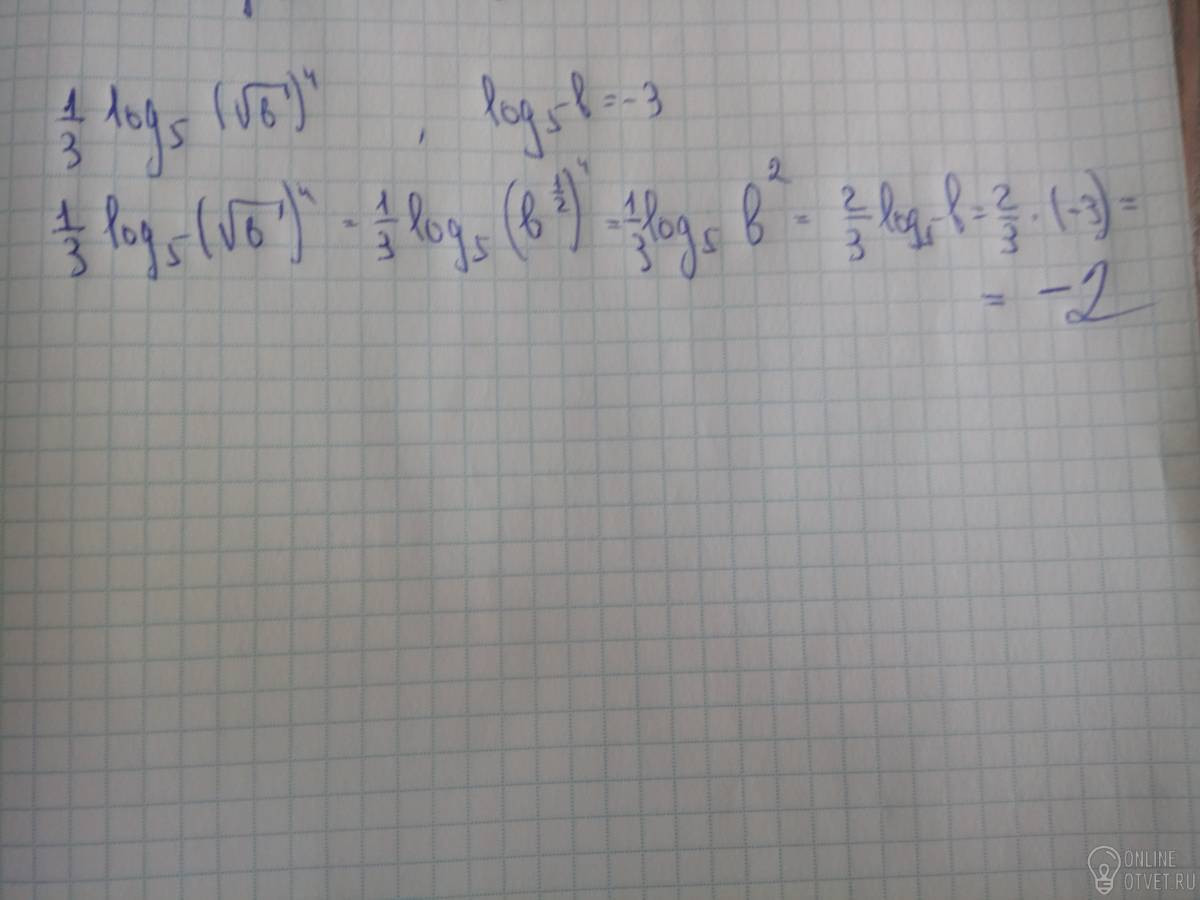 1/3 log₅ (√b)⁴ , log₅ b = -3
1/3 log₅ (√b)⁴ = 1/3 log₅ (b^(1/2))⁴ = 1/3 log₅ b² = 2/3 log₅ b = 2/3 · (-3) =
= -2
ONLINE
OTVET.RU